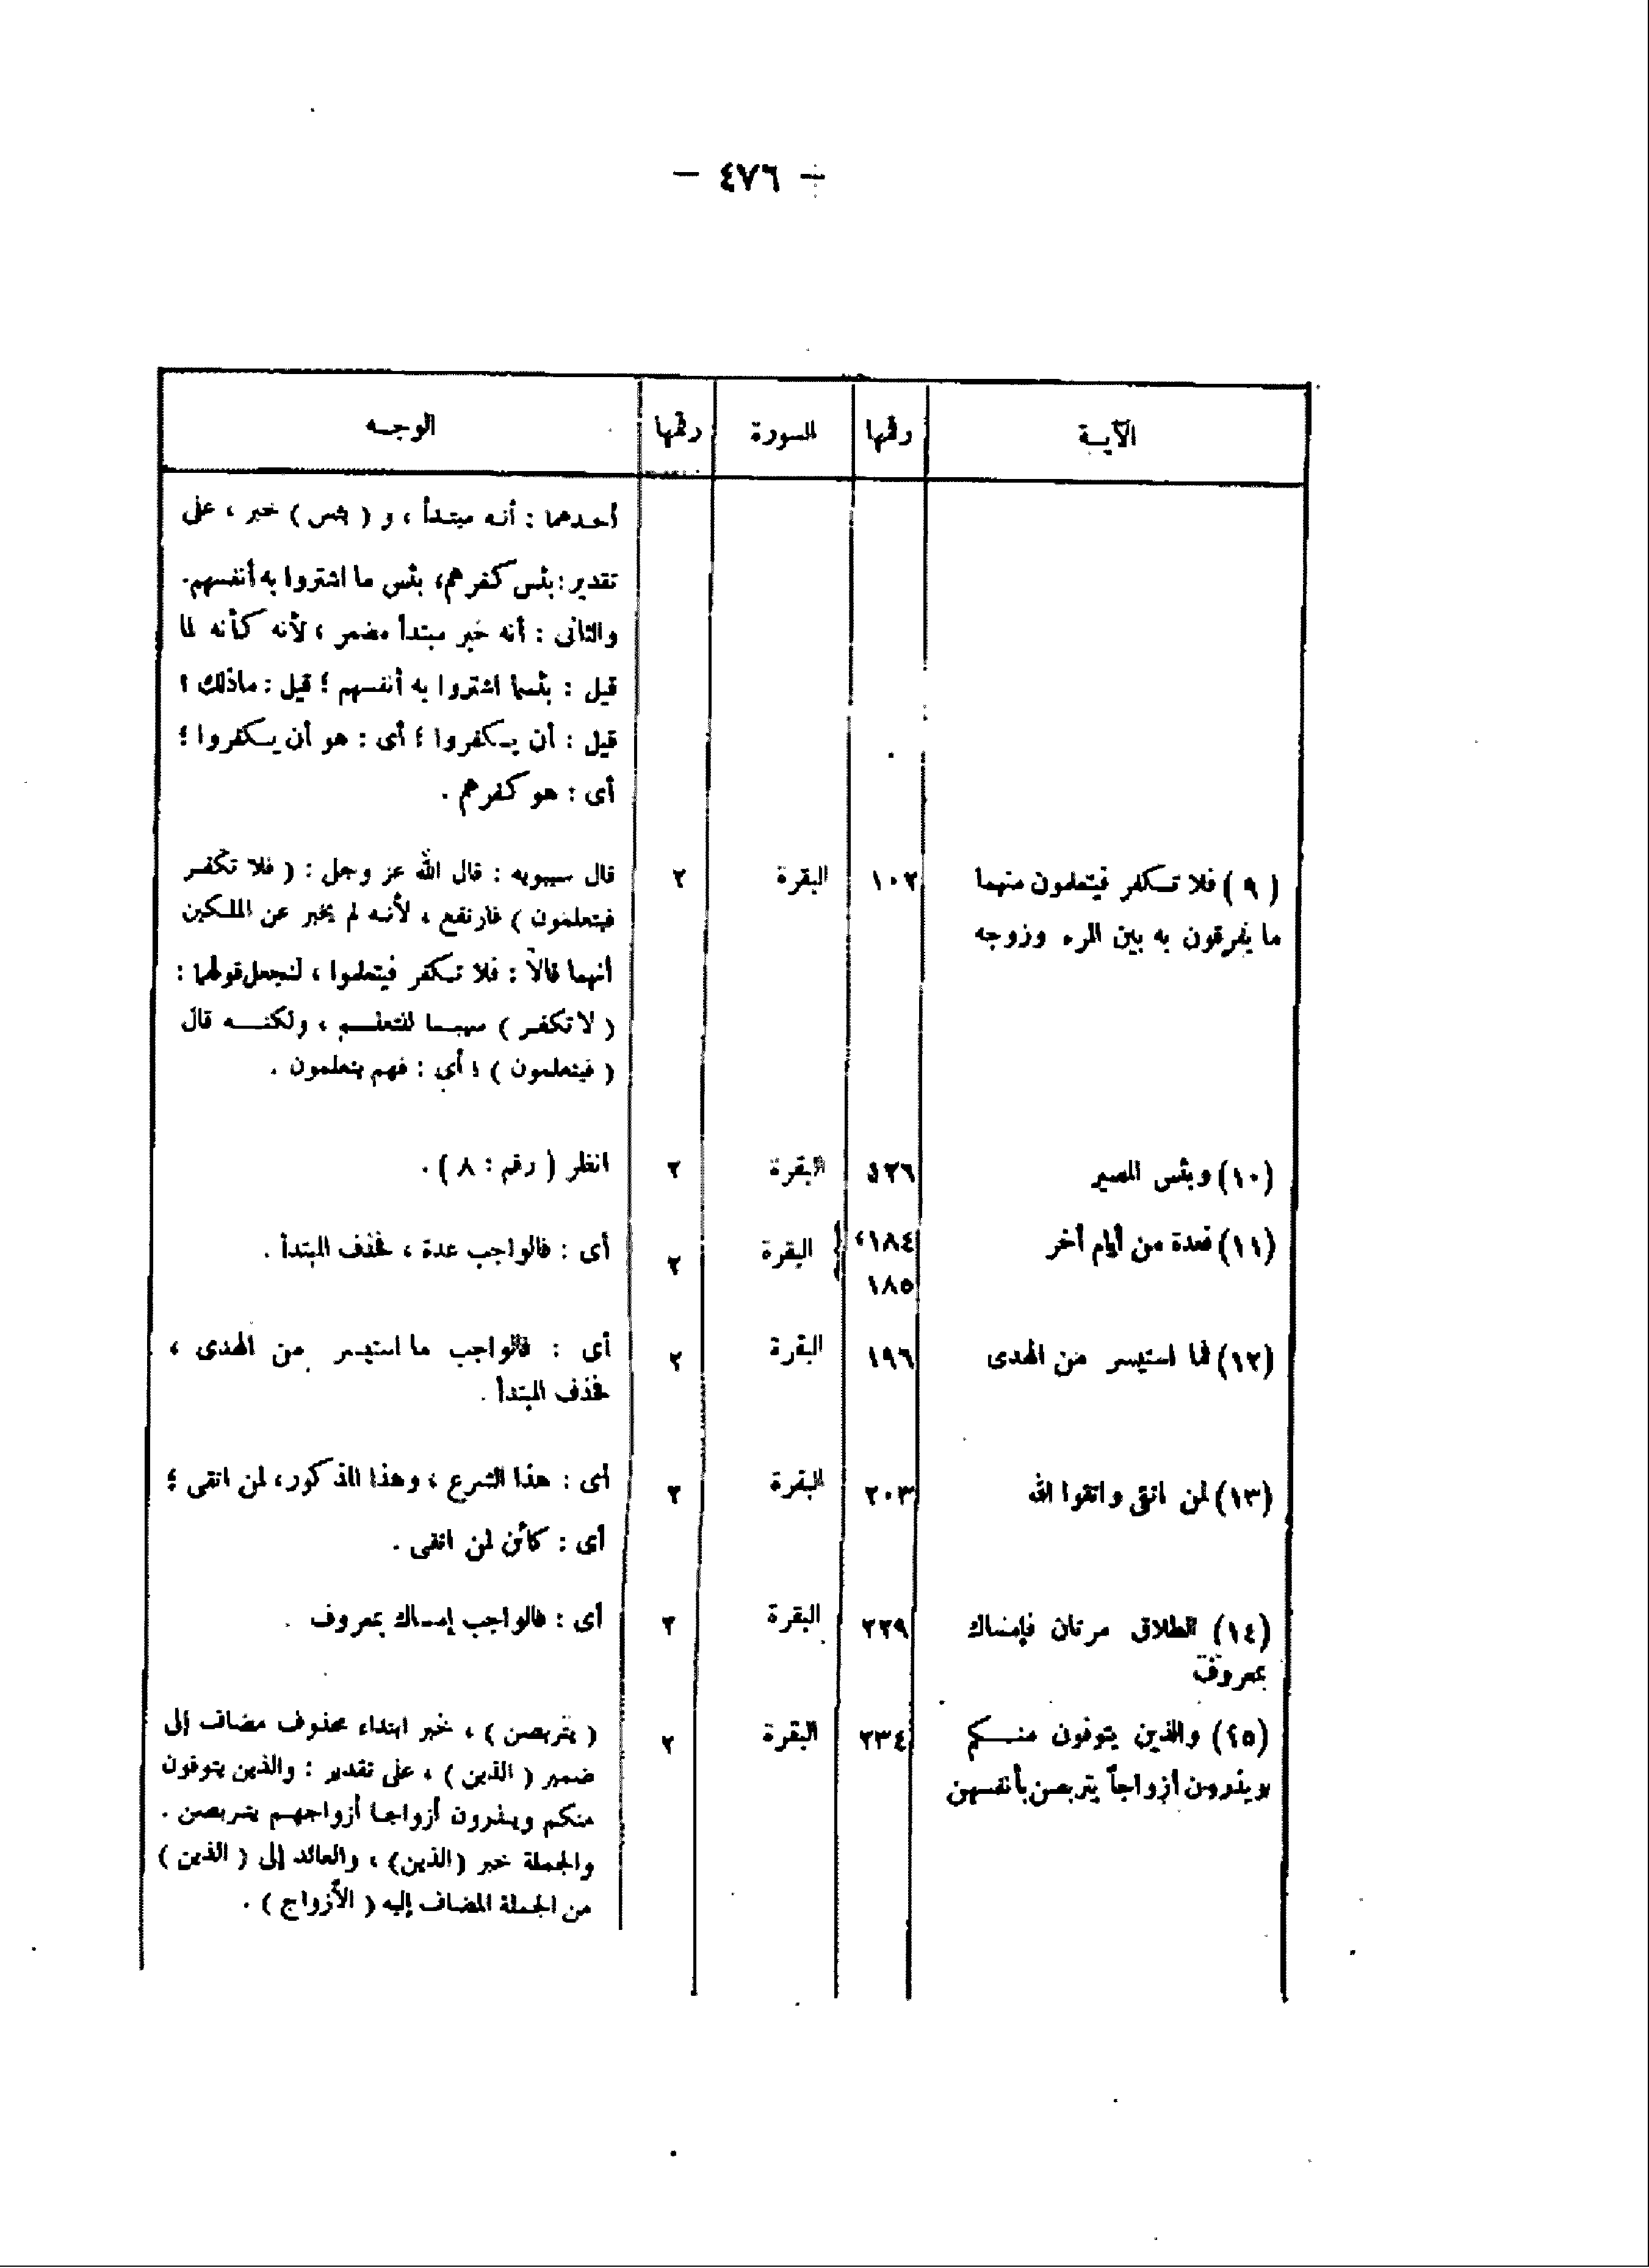 — ٤٧٦ —
الآيــة رقمها السورة رقمها الوجــه
أحـدهما : أنـه مبتـدأ ، و ( بئس ) خبر ، على
تقدير : بئس كفرهم، بئس ما اشتروا به أنفسهم.
والثانى : أنه خبر مبتدأ مضمر ، لأنه كأنه لما
قيل : بئسما اشتروا به أنفسهم ؛ قيل : ماذلك ؟
قيل : أن يـكفروا ؛ أى : هو أن يـكفروا ؛
أى : هو كفرهم .
( ٩ ) فلا تـكفر فيتعلمون منهما ١٠٢ البقرة ٢ قال سيبويه : قال الله عز وجل : ( فلا تكفـر
ما يفرقون به بين المرء وزوجه فيتعلمون ) فارتفع ، لأنـه لم يخبر عن الملـكين
أنهما قالا : فلا تـكفر فيتعلموا ، لنجعل قولهما :
( لا تكفـر ) سببـا للتعلـم ، ولكنــه قال
( فيتعلمون ) ؛ أى : فهم يتعلمون .
(١٠) وبئس المصير ٥٢٦ البقرة ٢ انظر ( رقم : ٨ ) .
(١١) فعدة من أيام أخر ١٨٤، البقرة ٢ أى : فالواجب عدة ، فحذف المبتدأ .
١٨٥
(١٢) فما استيسر من الهدى ١٩٦ البقرة ٢ أى : فالواجب ما استيسر من الهدى ،
فحذف المبتدأ .
(١٣) لمن اتقى واتقوا الله ٢٠٣ البقرة ٢ أى : هذا الشرع ، وهذا المذكور، لمن اتقى ؛
أى : كائن لمن اتقى .
(١٤) الطلاق مرتان فإمساك ٢٢٩ البقرة ٢ أى : فالواجب إمساك بمعروف .
بمعروف
(١٥) والذين يتوفون منــكم ٢٣٤ البقرة ٢ ( يتربصن ) ، خبر ابتداء محذوف مضاف إلى
ويذرون أزواجاً يتربصن بأنفسهن ضمير ( الذين ) ، على تقدير : والذين يتوفون
منكم ويـذرون أزواجـا أزواجهـم يتربصن .
والجملة خبر (الذين) ، والعائد إلى ( الذين )
من الجملة المضاف إليه ( الأزواج ) .